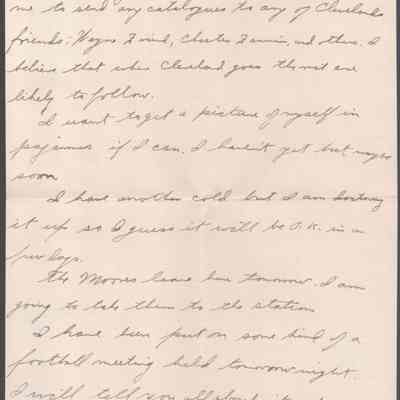 me to send any catalogues to any of Cleveland's
friends: Wayne, Chester and others. I
believe that when Cleveland goes the rest are
likely to follow.
I want to get a picture of myself in
pajamas if I can. I haven't yet but maybe
soon
I have another cold but I am
it up so I guess it will be O.K. in a
few days.
The Moores leave here tomorrow. I am
going to take them to the station
I have been put on some kind of a
football meeting held tomorrow night.
I will tell you all about it